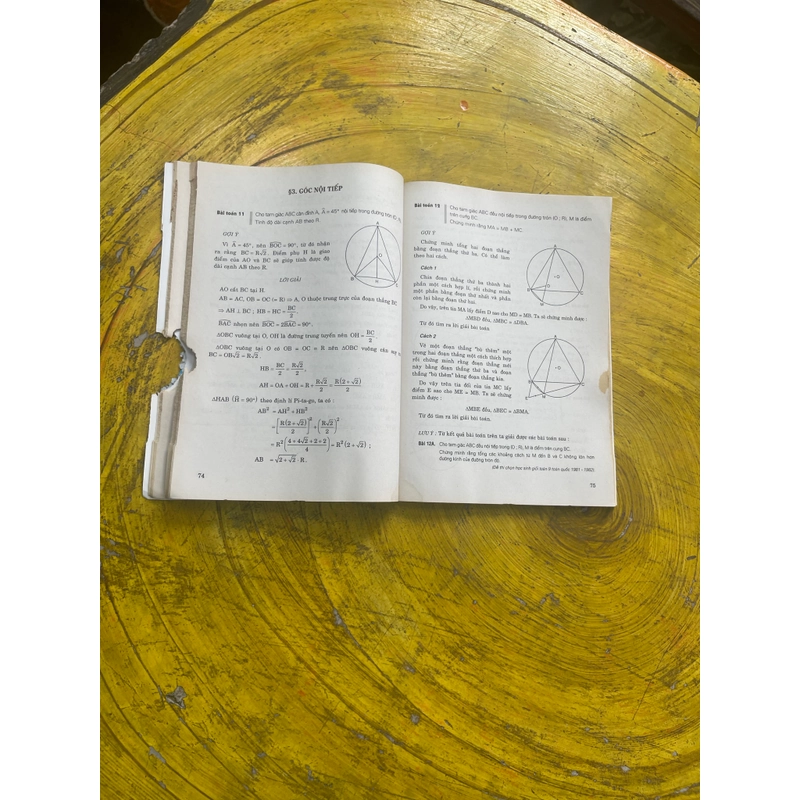 §3. GÓC NỘI TIẾP
Bài toán 11 Cho tam giác ABC cân đỉnh A, Â = 45° nội tiếp trong đường tròn (O ; R).
Tính độ dài cạnh AB theo R.
GỢI Ý
Vì Â = 45°, nên BOC = 90°, từ đó nhận
ra rằng BC = R√2. Điểm phụ H là giao
điểm của AO và BC sẽ giúp tính được độ
dài cạnh AB theo R.
LỜI GIẢI
AO cắt BC tại H.
AB = AC, OB = OC (= R) ⇒ A, O thuộc trung trực của đoạn thẳng BC
⇒ AH ⊥ BC ; HB = HC = BC/2
BAC nhọn nên BOC = 2BAC = 90°.
ΔOBC vuông tại O, OH là đường trung tuyến nên OH = BC/2
ΔOBC vuông tại O có OB = OC = R nên ΔOBC vuông cân
BC = OB√2 = R√2.
HB = BC/2 = R√2/2,
AH = OA + OH = R + R√2/2 = R(2+√2)/2
ΔHAB (Ĥ = 90°) theo định lí Pi-ta-go, ta có :
AB² = AH² + HB²
= [R(2+√2)/2]² + (R√2/2)²
= R²(4+4√2+2+2/4) = R²(2+√2) ;
AB = √2+√2 . R.
74
A
O
B
H
C
Cho tam giác ABC đều nội tiếp trong đường tròn (O ; R), M là điểm
Bài toán
trên cung BC.
Chứng minh rằng MA = MB + MC.
GỢI Ý
Chứng minh tổng hai đoạn thẳng
bằng đoạn thẳng thứ ba. Có thể làm
theo hai cách.
Cách 1
Chia đoạn thẳng thứ ba thành hai
phần một cách hợp lí, rồi chứng minh
một phần bằng đoạn thứ nhất và phần
còn lại bằng đoạn thứ hai.
Do vậy, trên tia MA lấy điểm D sao cho MD = MB. Ta sẽ chứng minh được :
ΔMBD đều, ΔMBC = ΔDBA.
Từ đó tìm ra lời giải bài toán
Cách 2
Vẽ một đoạn thẳng "bù thêm" một
trong hai đoạn thẳng một cách thích hợp
rồi chứng minh rằng đoạn thẳng mới
này bằng đoạn thẳng thứ ba và đoạn
thẳng "bù thêm" bằng đoạn thẳng kia.
Do vậy trên tia đối của tia MC lấy
điểm E sao cho ME = MB. Ta sẽ chứng
minh được :
ΔMBE đều, ΔBEC = ΔBMA.
Từ đó tìm ra lời giải bài toán.
LƯU Ý : Từ kết quả bài toán trên ta giải được các bài toán sau :
Bài 12A. Cho tam giác ABC đều nội tiếp trong (O ; R), M là điểm trên cung BC.
Chứng minh rằng tổng các khoảng cách từ M đến B và C không lớn hơn
đường kính của đường tròn đó.
(Đề thi chọn học sinh giỏi toán 9 toàn quốc 1981 - 1982).
75